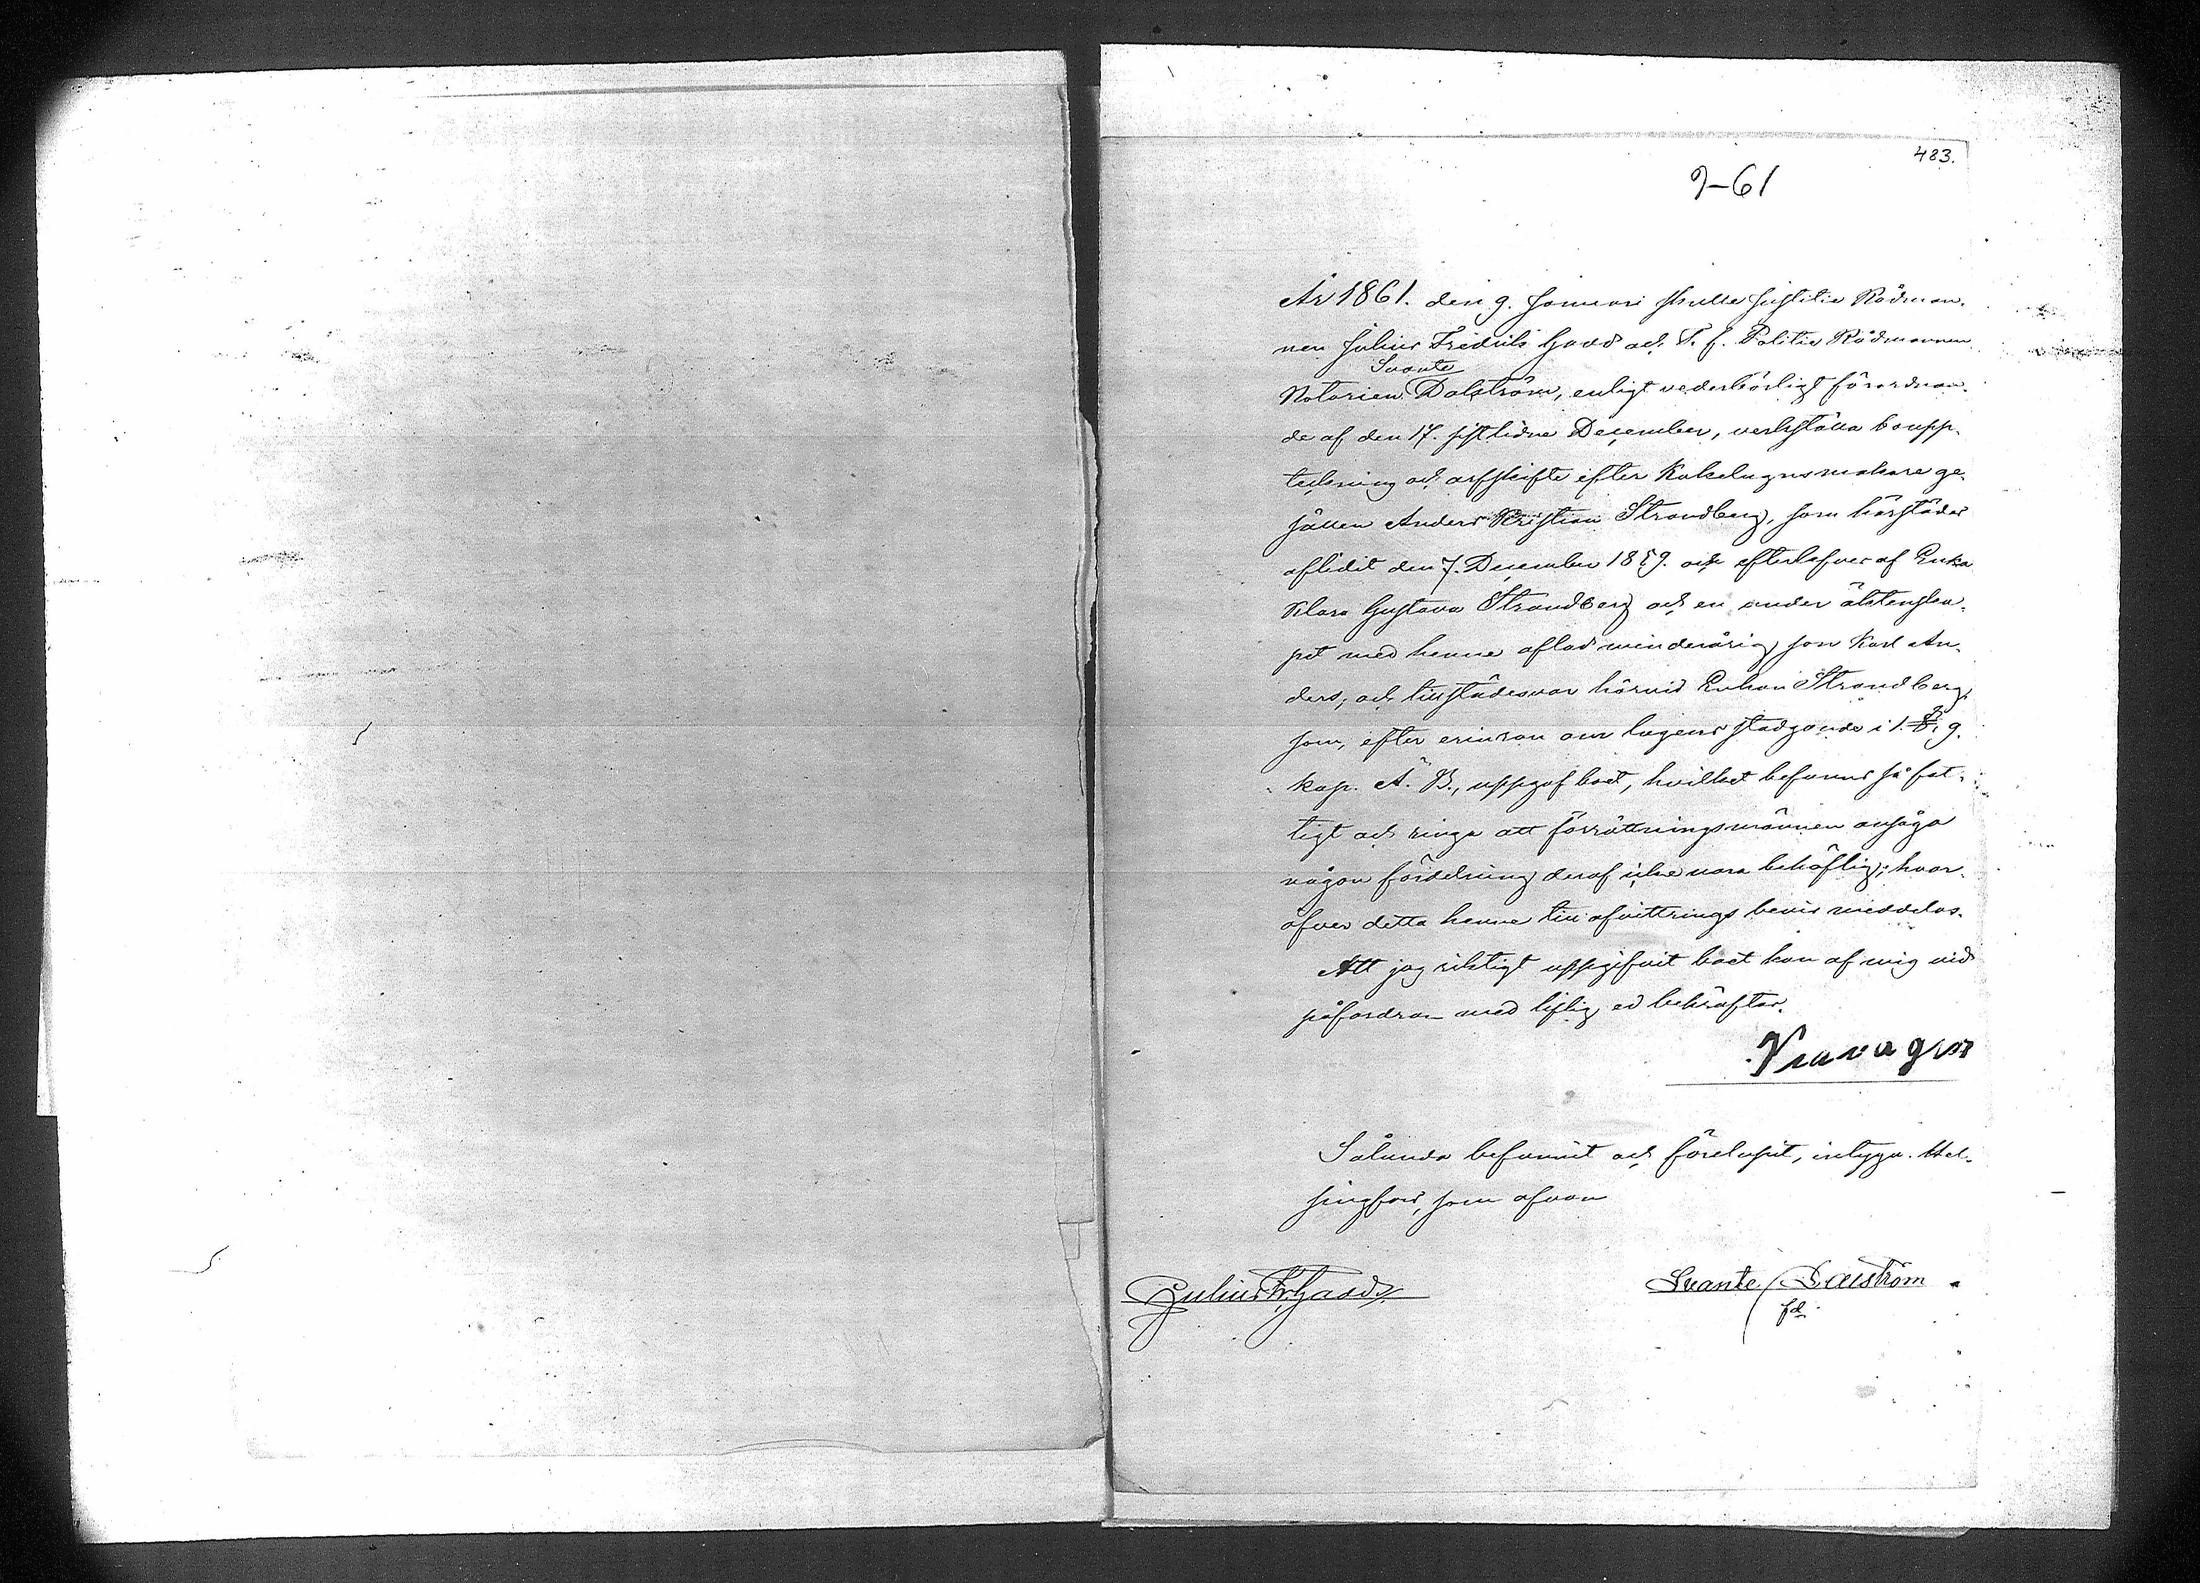 483.
9-61
År 1861. den 9. Januari skulle Justitie Rådman-
nen Julius Fredrik Gadd och T. f. Politie Rådmannen
Svante
Notarien Dalström, enligt vederbörligt förordnan-
de af den 17. sistlidne December, verkställa boupp-
teckning och arfskifte efter Kakelugnsmakare ge-
sällen Anders Kristian Strandberg, som härstädes
aflidit den 7. December 1859. och efterlefves af Enka
Klara Gustava Strandberg och en under äktenska-
pet med henne aflad minderårig son Karl An-
ders; och tillstädesvar härvid Enkan Strandberg,
som, efter erinran om lagens stadgande i 1. § 9.
kap. Ä. B., uppgaf boet, hvilket befanns så fat-
tigt och ringa att förrättningsmännen ansågo
någon fördelning deraf icke vara behöflig; hvar-
öfver detta henne till afvittrings bevis meddelas.
Att jag riktigt uppgifvit boet kan af mig vid
påfordran med liflig ed bekräftas.
Sålunda befunnit och förelupit, intyga. Hel-
singfors, som ofvan
Julius Fr. Gadd
Svante Dalström
fd.